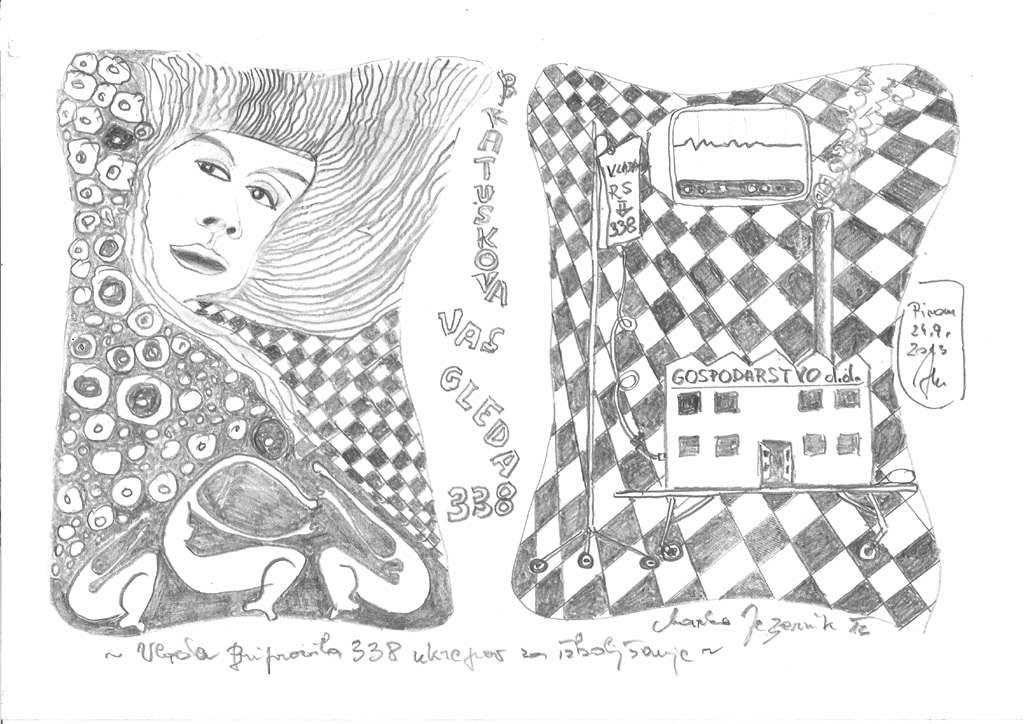 BRATUŠKOVA
VAS
GLEDA
338
VLADA
RS
338
GOSPODARSTVO d.d.
Piran
24.9.
2013
Marko Jezernik
~ Vlada pripravila 338 ukrepov za izboljšanje ~